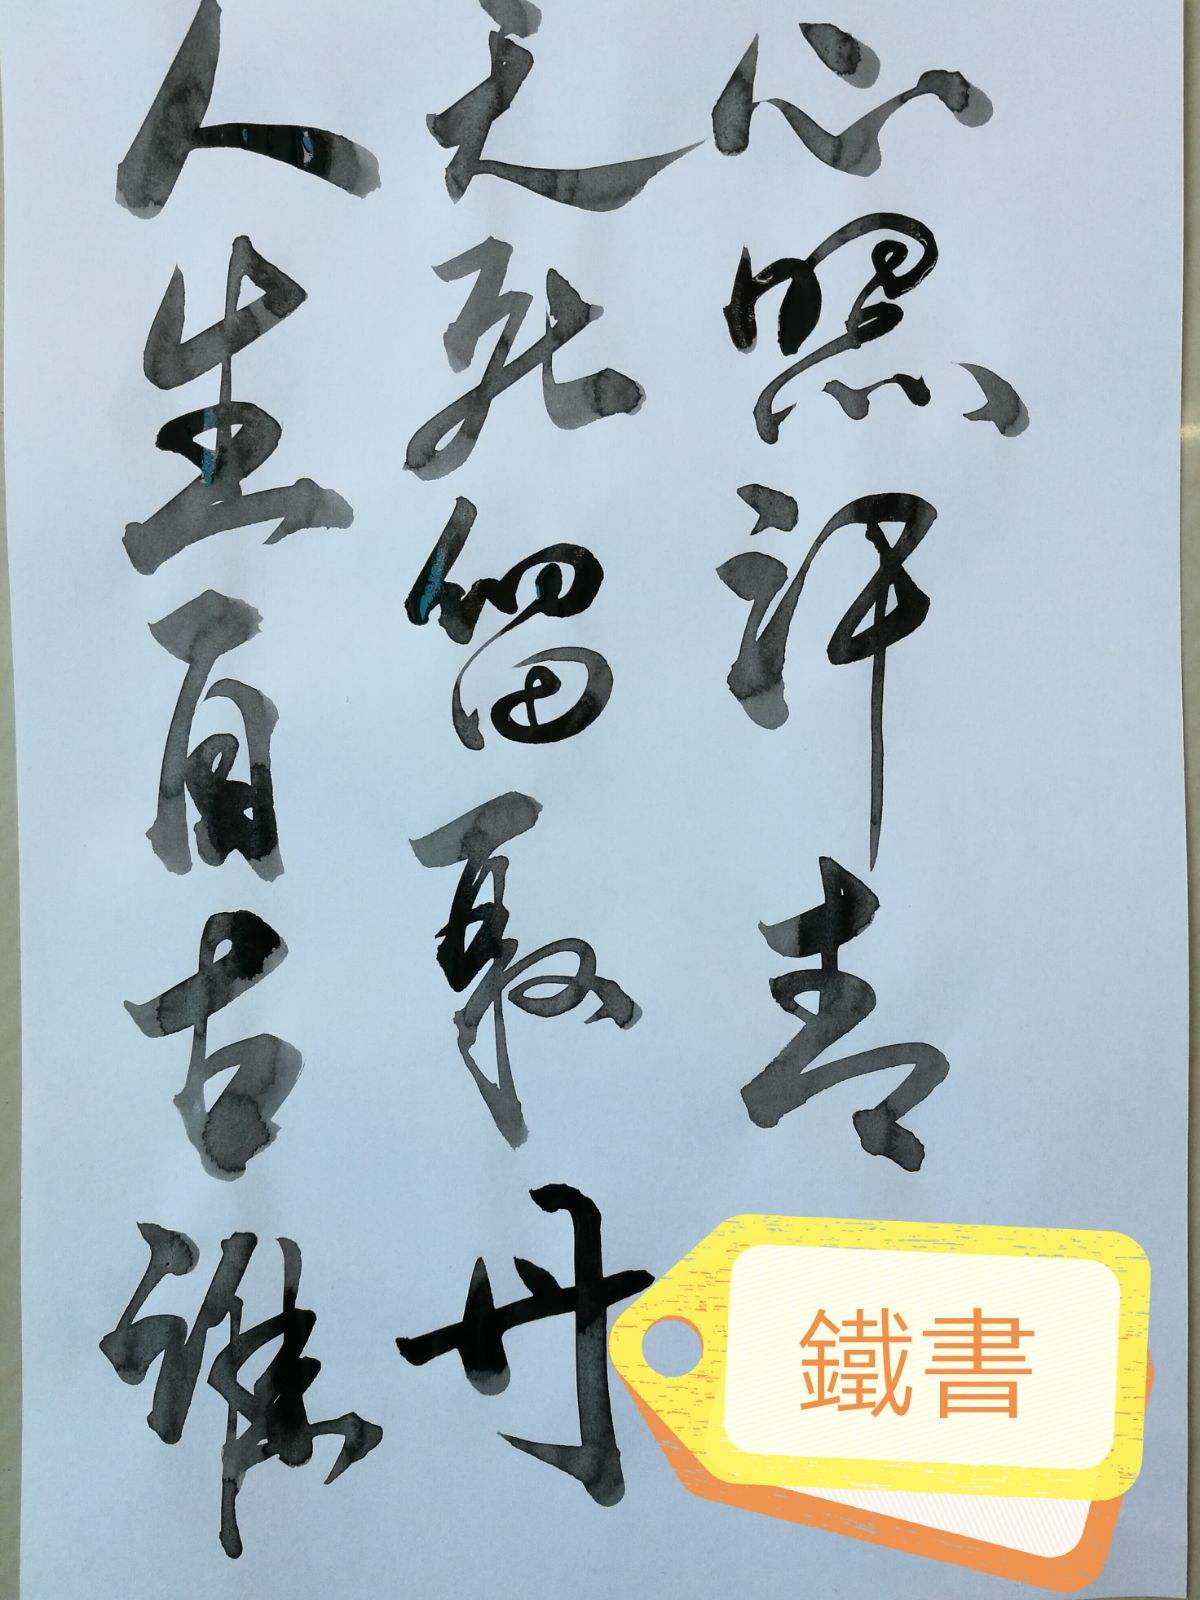 人生自古誰
无死留取丹
心照汗青
鐵書